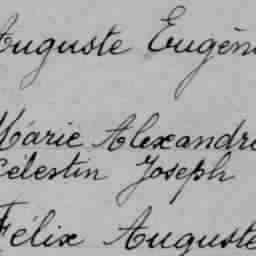 Auguste Eugèn
Marie Alexandre
Célestin Joseph
Félix Auguste